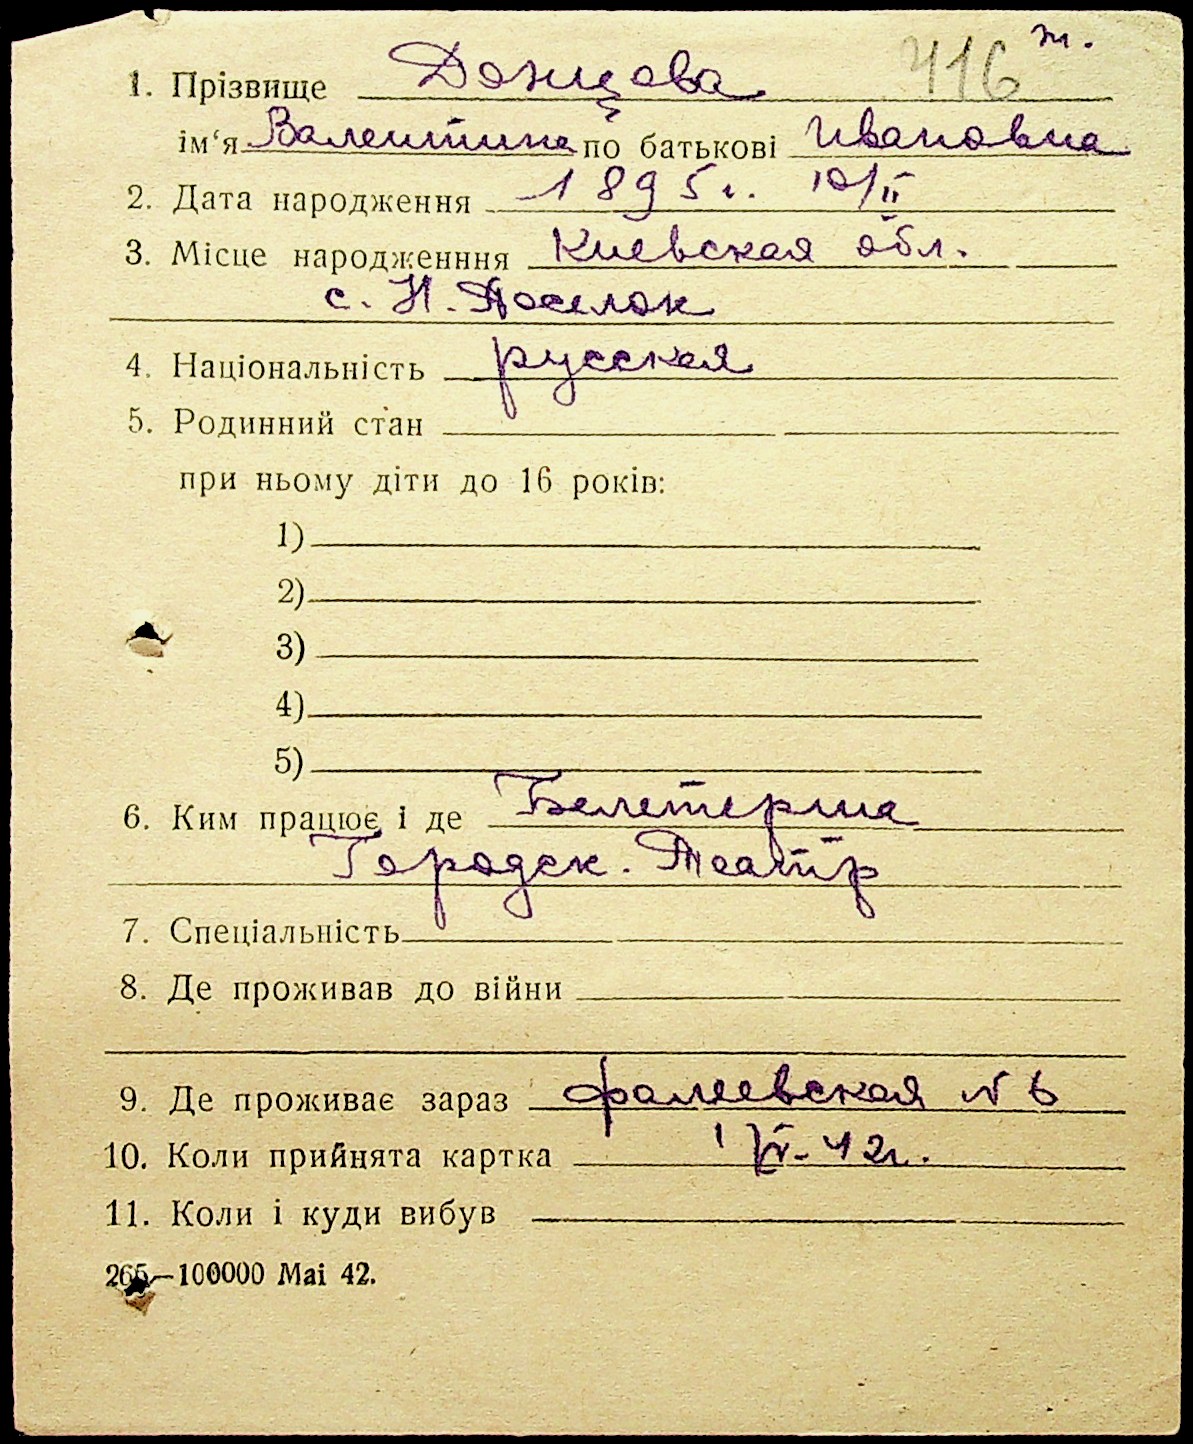 716 т.
1. Прізвище Донцова
ім‘я Валентина по батькові Ивановна
2. Дата народження 1895 г. 10/II
3. Місце народженння Киевская обл.
с. Н. Поселок
4. Національність русская
5. Родинний стан
при ньому діти до 16 років:
1)
2)
3)
4)
5)
6. Ким працює і де Белетерша
Городск. Театр
7. Спеціальність
8. Де проживав до війни
9. Де проживає зараз Фалеевская № 6
10. Коли прийнята картка 42 г.
11. Коли і куди вибув
265—100000 Mai 42.